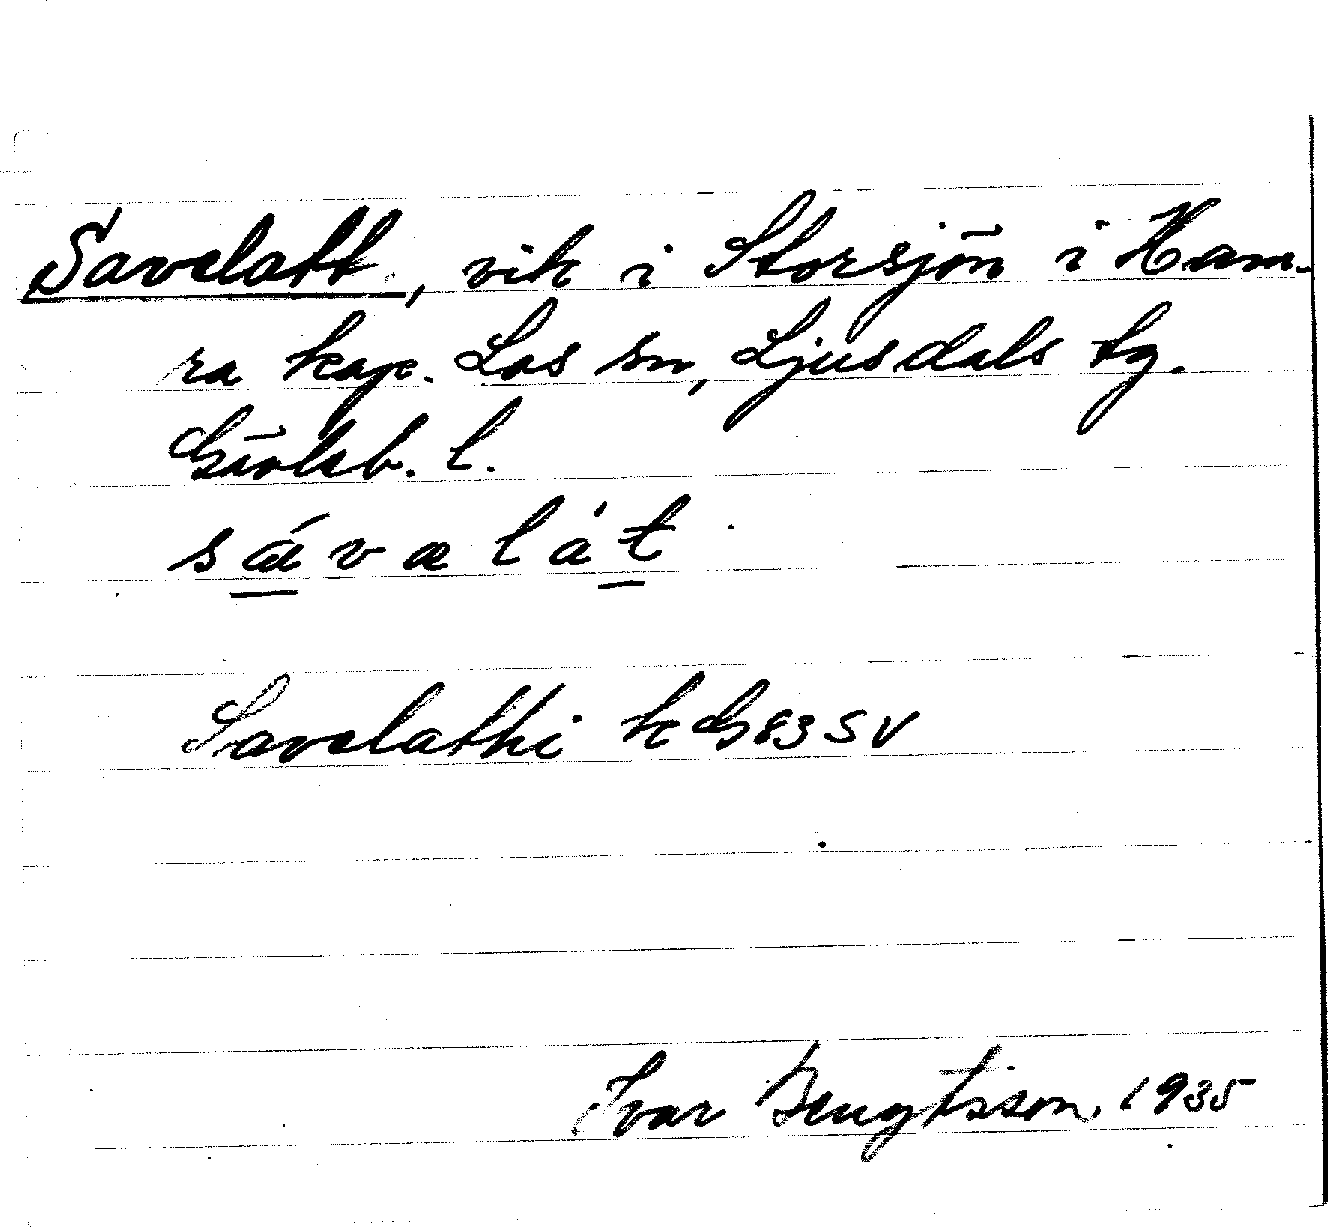 Savelatt, vik i Storsjön i Ham-
ra kap. Los sn, Ljusdals tg.
Gävleb. l.
sávælàt
Savelathi k G 83 SV
Ivar Bengtsson, 1935